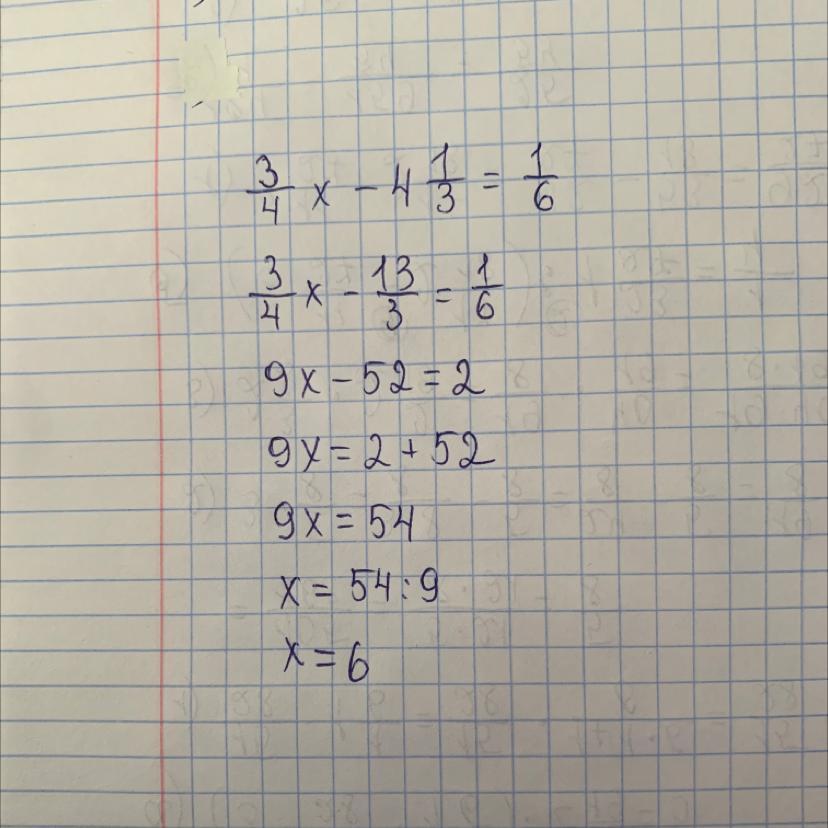 3/4 x - 4 1/3 = 1/6
3/4 x - 13/3 = 1/6
9x - 52 = 2
9x = 2 + 52
9x = 54
x = 54 : 9
x = 6